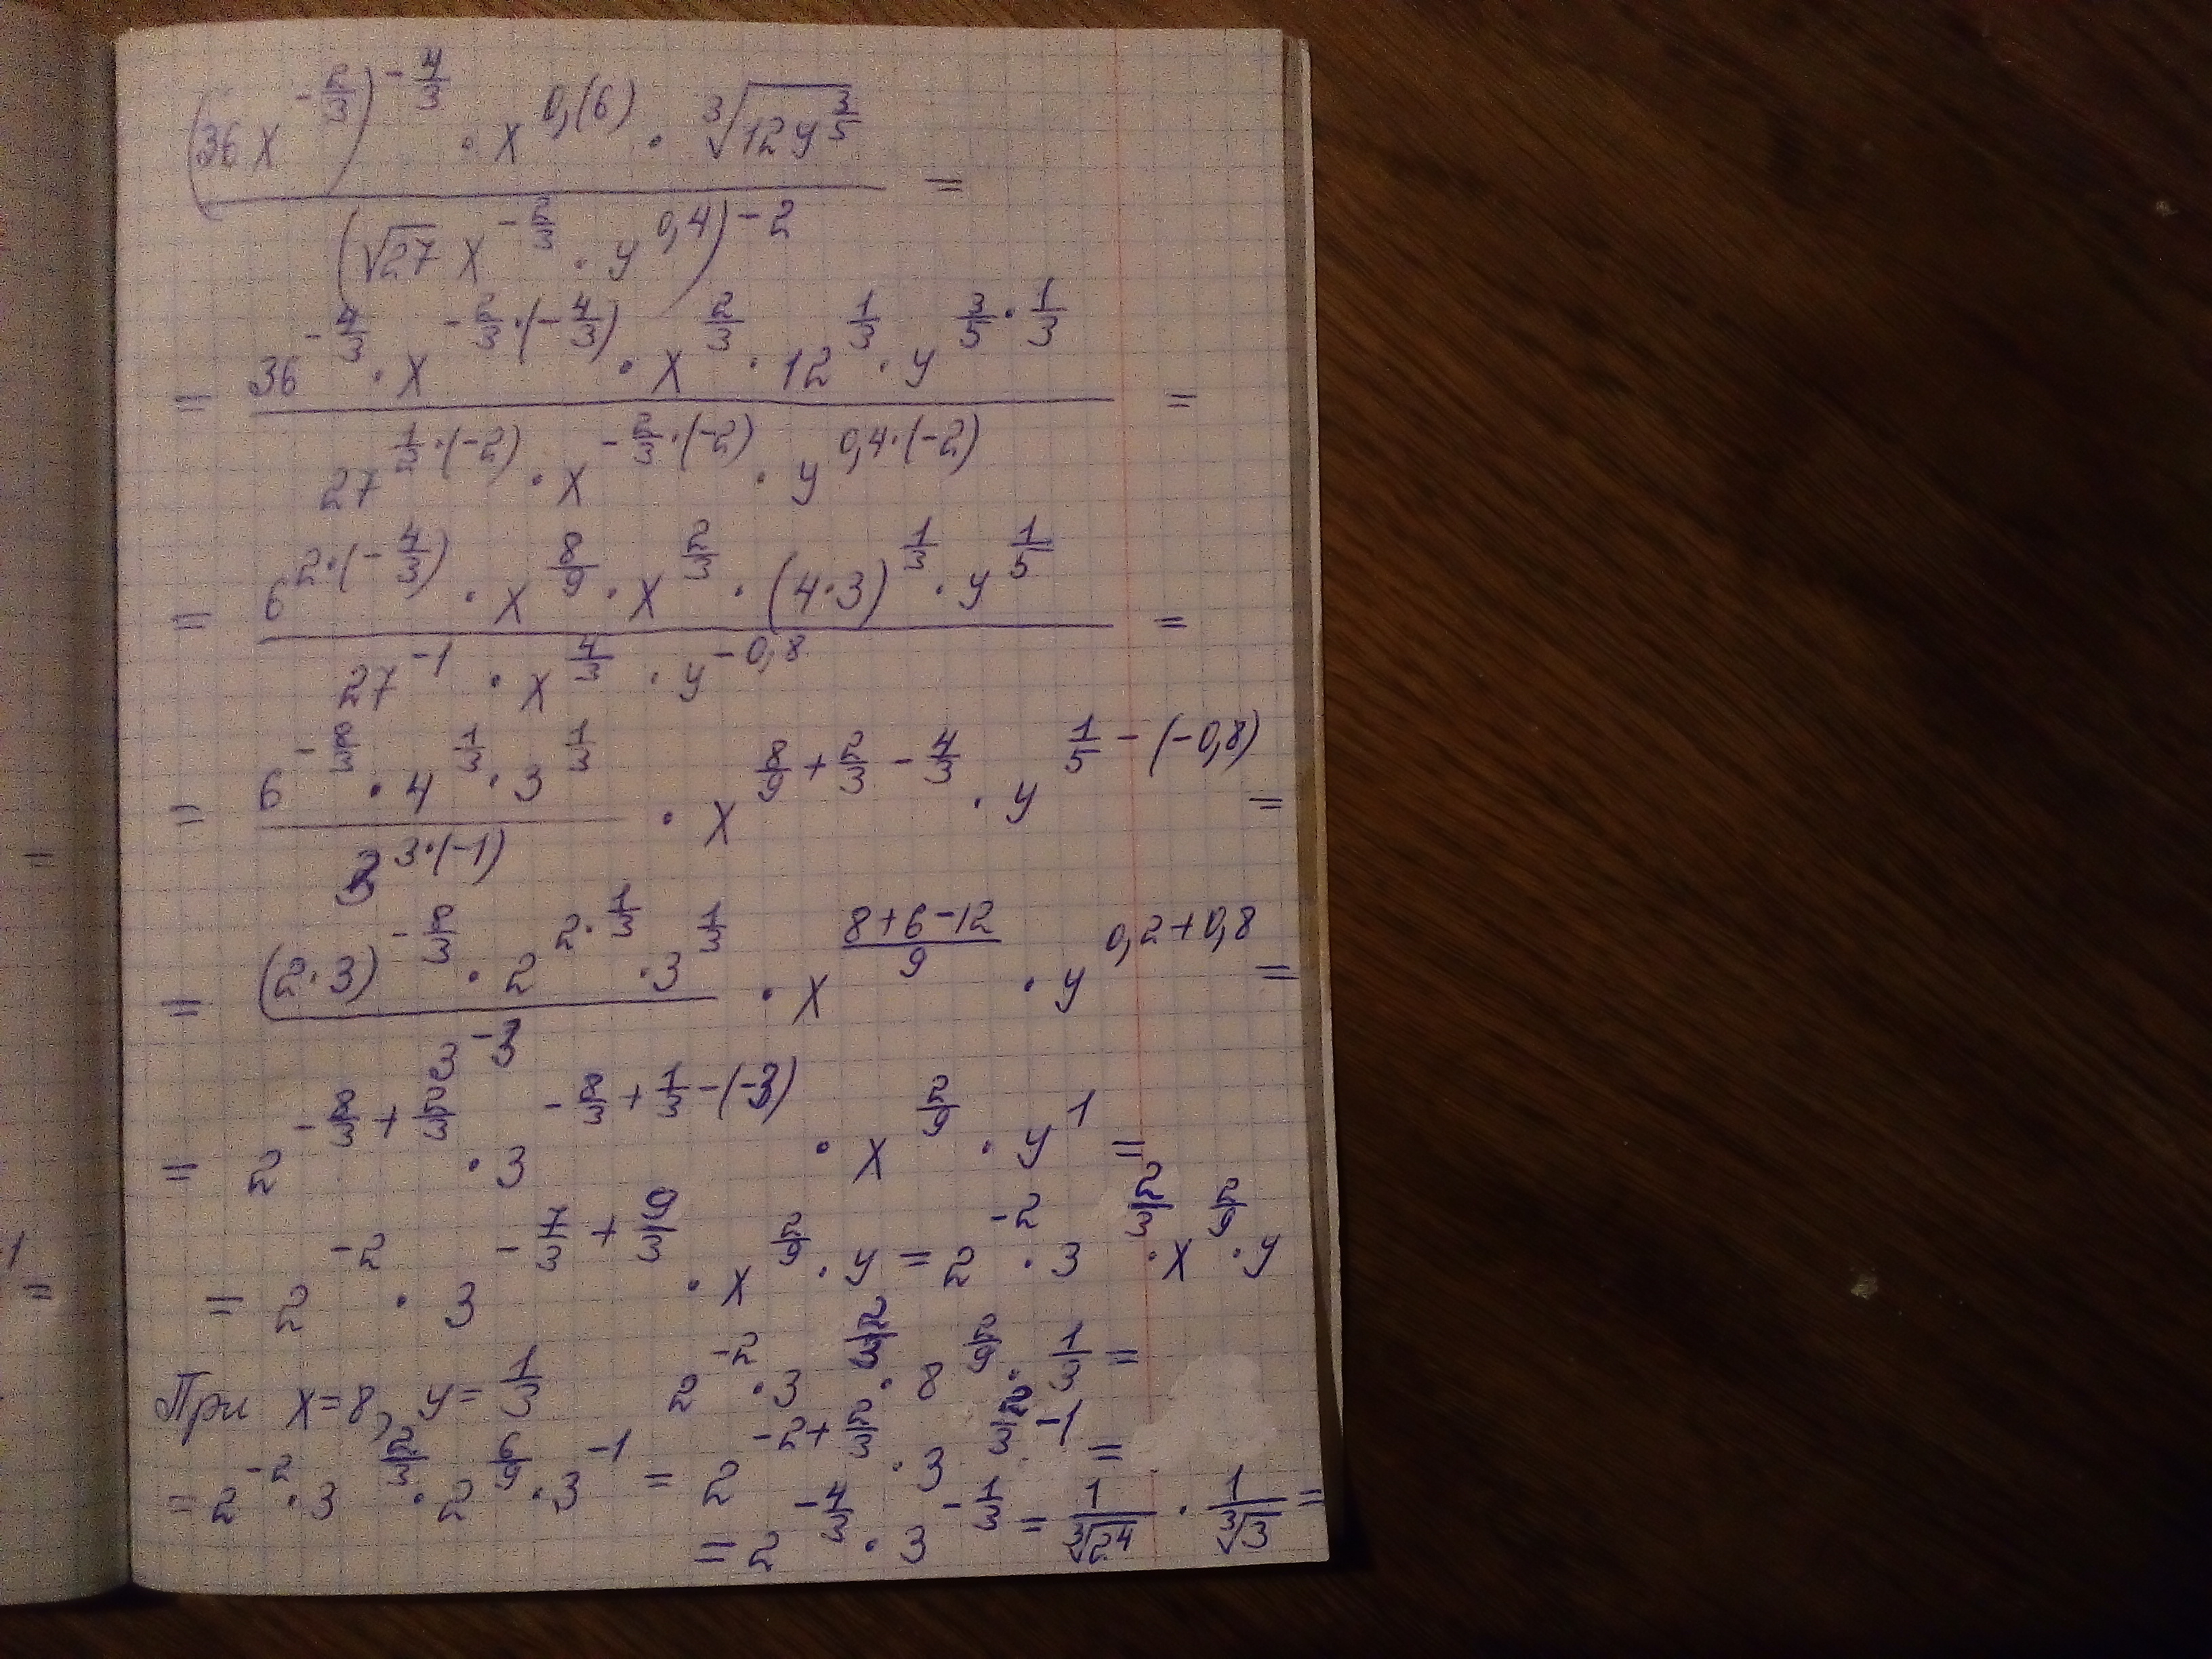 =
-1
=
(36x^{-2/3})^{-4/3} · x^{0,(6)} · ∛(12y^{3/5})
/ (√27 x^{-2/3} · y^{0,4})^{-2} =
= 36^{-4/3} · x^{-2/3·(-4/3)} · x^{2/3} · 12^{1/3} · y^{3/5·1/3}
/ 27^{1/2·(-2)} · x^{-2/3·(-2)} · y^{0,4·(-2)} =
= 6^{2·(-4/3)} · x^{8/9} · x^{2/3} · (4·3)^{1/3} · y^{1/5}
/ 27^{-1} · x^{4/3} · y^{-0,8} =
= 6^{-8/3} · 4^{1/3} · 3^{1/3} / 3^{3·(-1)} · x^{8/9+2/3-4/3} · y^{1/5-(-0,8)} =
= (2·3)^{-8/3} · 2^{2·1/3} · 3^{1/3} / 3^{-3} · x^{(8+6-12)/9} · y^{0,2+0,8} =
= 2^{-8/3+2/3} · 3^{-8/3+1/3-(-3)} · x^{2/9} · y^1 =
= 2^{-2} · 3^{-7/3+9/3} · x^{2/9} · y = 2^{-2} · 3^{2/3} · x^{2/9} · y
При x=8, y=1/3 2^{-2} · 3^{2/3} · 8^{2/9} · 1/3 =
= 2^{-2} · 3^{2/3} · 2^{6/9} · 3^{-1} = 2^{-2+2/3} · 3^{2/3-1} =
= 2^{-4/3} · 3^{-1/3} = 1/∛(2^4) · 1/∛3 =